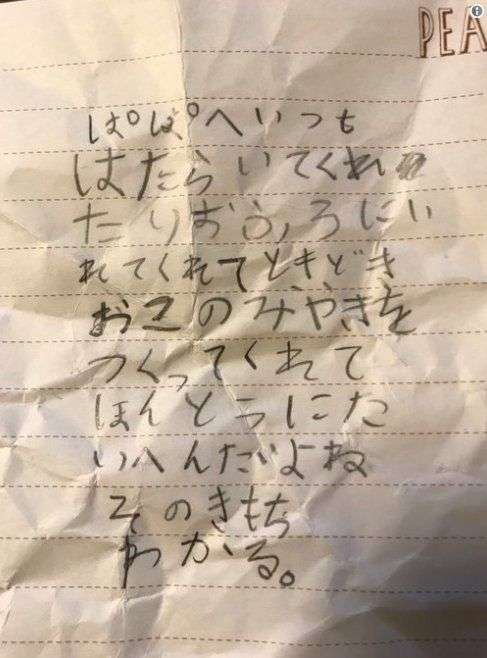 PEA
ぱぱへいつも
はたらいてくれ
たりおふろにい
れてくれてときどき
おこのみやきを
つくってくれて
ほんとうにた
いへんだよね
そのきもち
わかる。